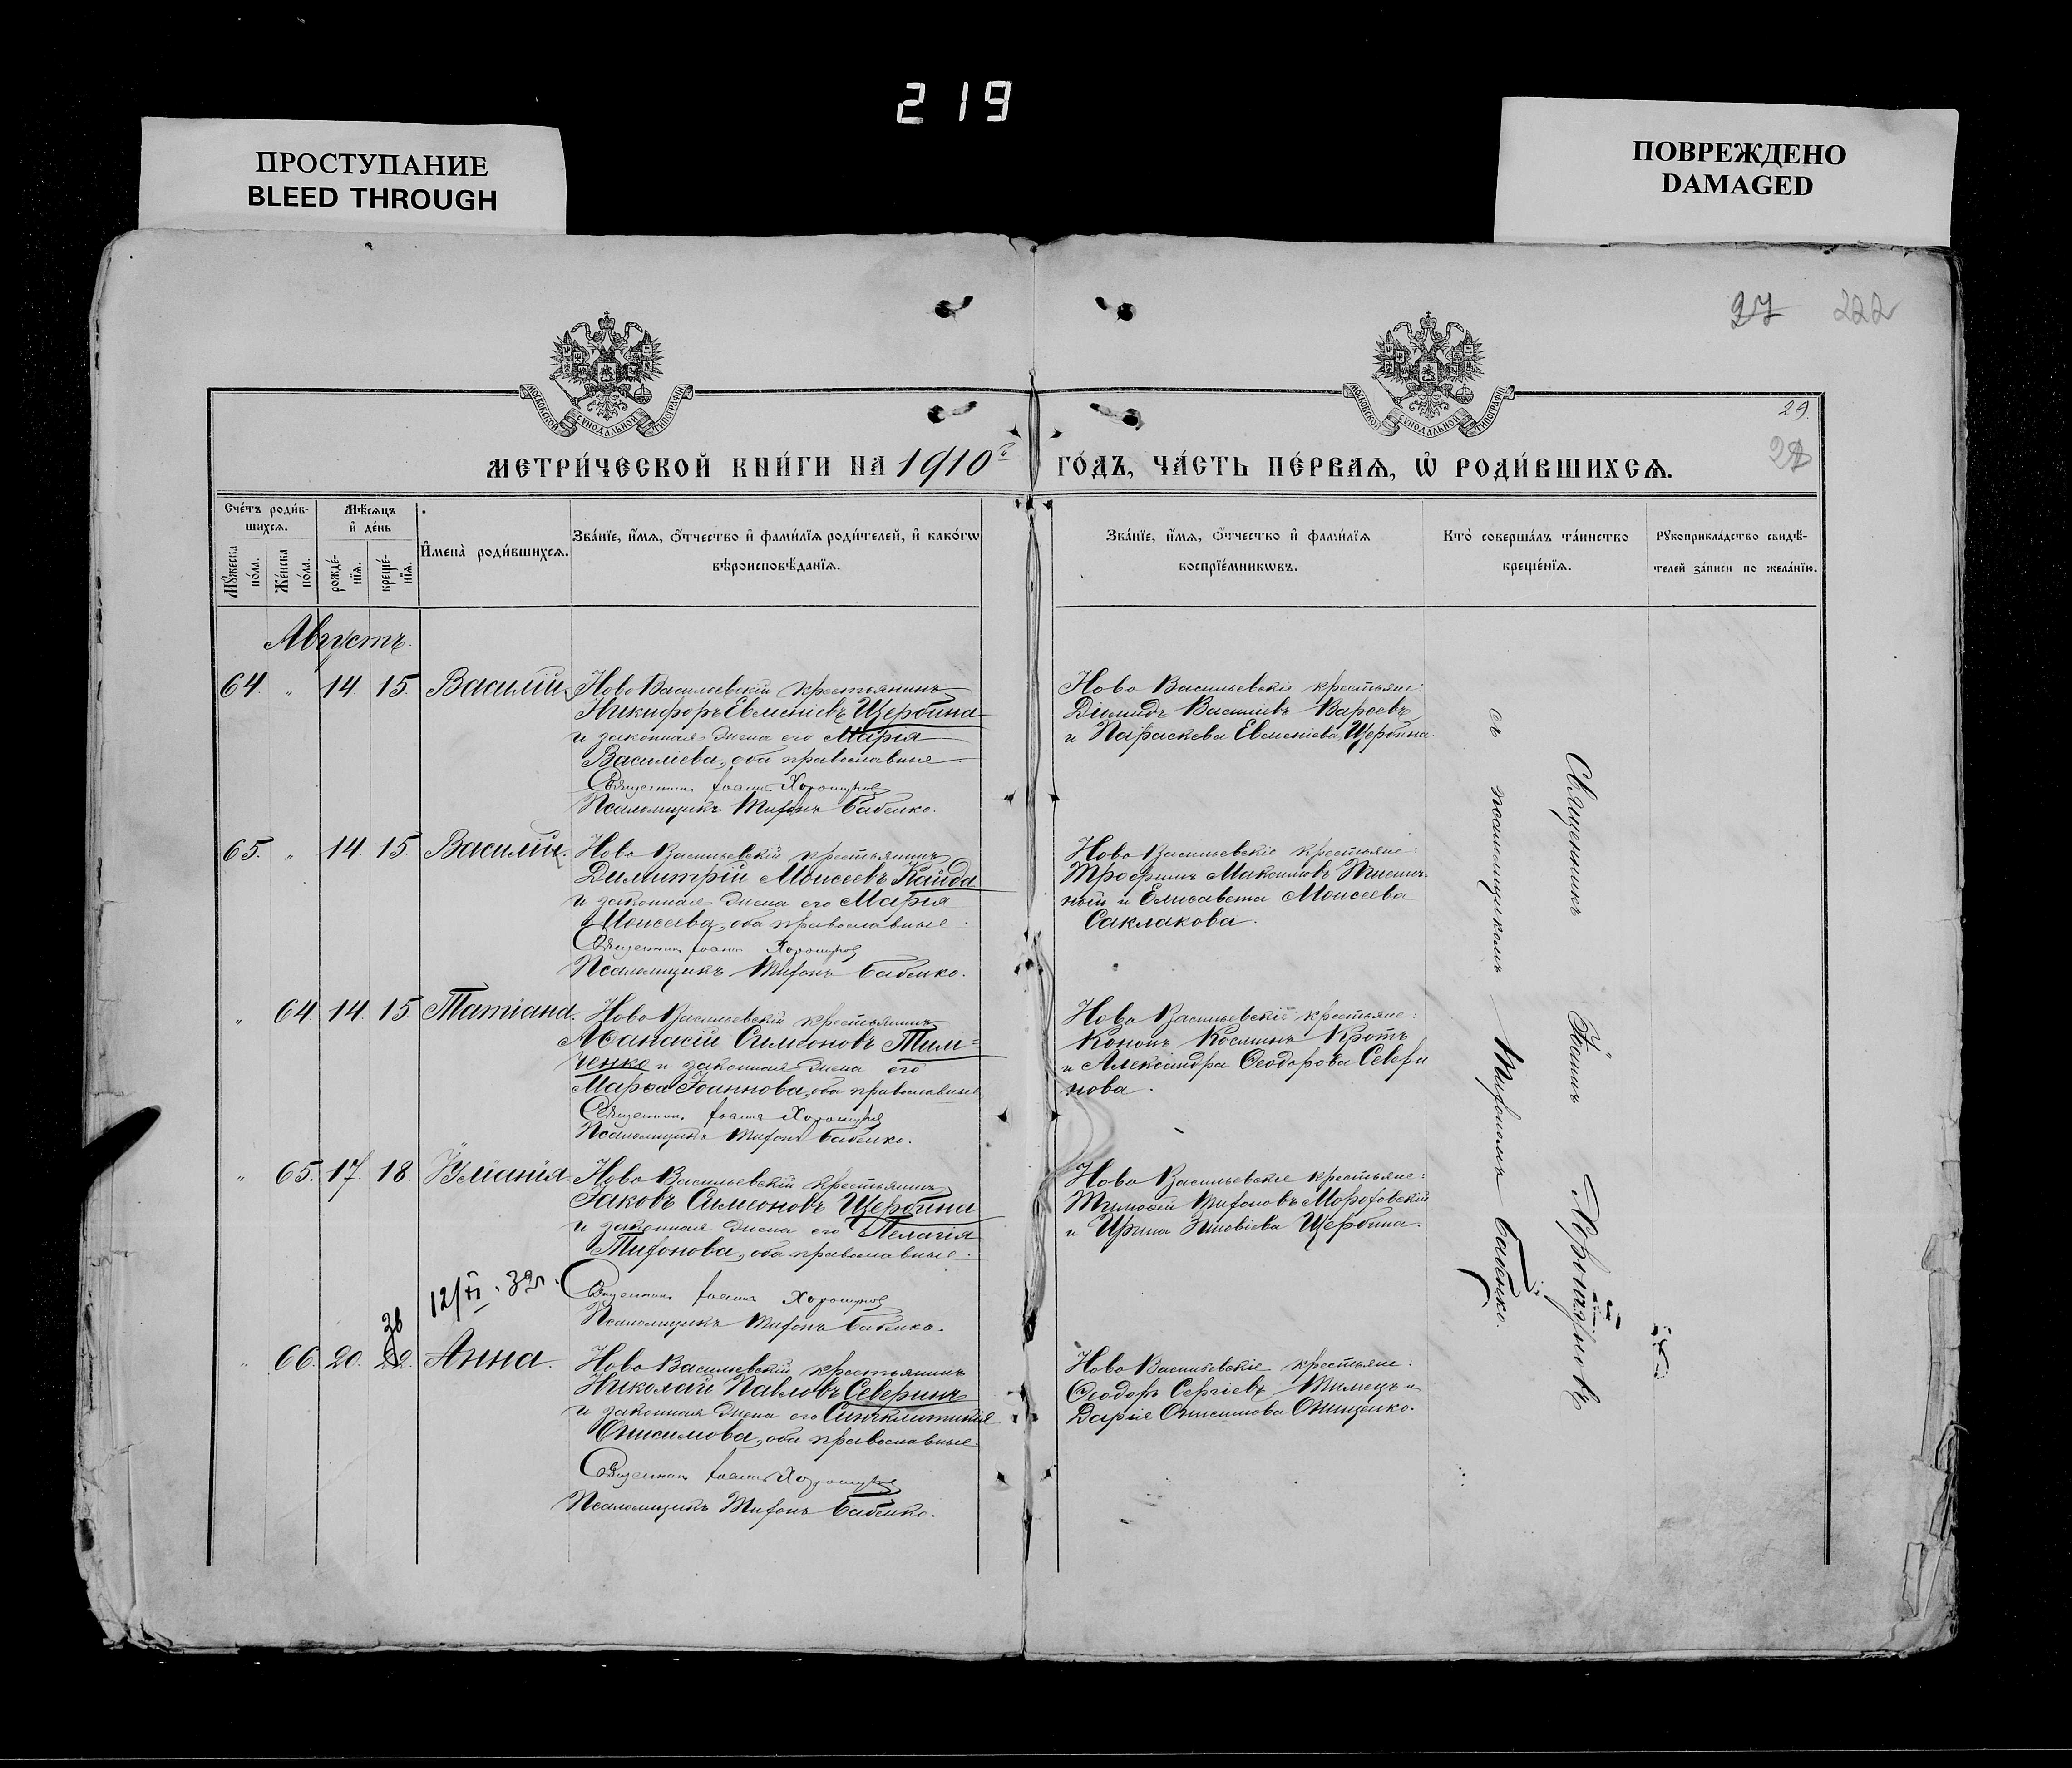 219
ПРОСТУПАНИЕ
BLEED THROUGH
ПОВРЕЖДЕНО
DAMAGED
27 222
МОСКОВСКОЙ СѴНОДАЛЬНОЙ ТИПОГРАФІИ
МОСКОВСКОЙ СѴНОДАЛЬНОЙ ТИПОГРАФІИ
29.
МЕТРИ́ЧЕСКОЙ КНИ́ГИ НА 1910й ГО́ДЪ, ЧА́СТЬ ПЕ́РВАѦ, Ѡ҆ РОДИ́ВШИХСѦ.
Сче́тъ роди́в-
шихсѧ.
Мꙋжеска по́ла.
Же́нска по́ла.
Мѣ́сѧцъ и҆ де́нь
рожде́-нїѧ.
креще́-нїѧ.
И҆мена̀ роди́вшихсѧ.
Зва́нїе, и҆́мѧ, ѻ҆́тчество и҆ фами́лїѧ роди́телей, и҆ како́гѡ
вѣроисповѣ́данїѧ.
Зва́нїе, и҆́мѧ, ѻ҆́тчество и҆ фами́лїѧ
воспрїе́мникѡвъ.
Кто̀ соверша́лъ та́инство
креще́нїѧ.
Рꙋкоприкла́дство свидѣ́-
телей за́писи по жела́нїю.
Августъ.
64. " 14. 15. Василій
Ново Васильевскій крестьянинъ
Никифоръ Евменіевъ Щербина
и законная жена его Марія
Василіева, оба православные.
Священникъ Іоаннъ Хорошуновъ
Псаломщикъ Тифонъ Бабенко.
Ново Васильевскіе крестьяне:
Василіевъ
и Параскева Евменіева Щербина.
65. " 14. 15. Василій.
Ново Васильевскій крестьянинъ
Димитрій Моисеевъ Кайда
и законная жена его Марія
Моисеева, оба православные.
Священникъ Іоаннъ Хорошуновъ
Псаломщикъ Тифонъ Бабенко.
Ново Васильевскіе крестьяне:
Трофимъ Максимовъ
и Елисавета Моисеева
Саклакова.
" 64. 14. 15. Татіана.
Ново Васильевскій крестьянинъ
Аѳанасій Симеоновъ Тим=
ченко и законная жена его
Марѳа Іоаннова, оба православные
Священникъ Іоаннъ Хорошуновъ
Псаломщикъ Тифонъ Бабенко.
Ново Васильевскіе крестьяне:
Кононъ Косминъ Кротъ
и Александра Ѳеодорова Севери
нова.
" 65. 17. 18. Уліанія.
Ново Васильевскій крестьянинъ
Іаковъ Симеоновъ Щербина
и законная жена его Пелагія
Тифонова, оба православные.
Священникъ Іоаннъ Хорошуновъ
Псаломщикъ Тифонъ Бабенко.
Ново Васильевскіе крестьяне:
Тимоѳей Тифоновъ Морозовскій
и Ирина Зиновіева Щербина.
" 66. 20. 22. Анна.
Ново Васильевскій крестьянинъ
Николай Павловъ Северинъ
и законная жена его Синклитикія
Онисимова, оба православные.
Священникъ Іоаннъ Хорошуновъ
Псаломщикъ Тифонъ Бабенко.
Ново Васильевскіе крестьяне:
Ѳеодоръ Сергіевъ и
Дарія Онисимова Онищенко.
Священникъ Іоаннъ Хорошуновъ
съ псаломщикомъ Тифономъ Бабенко.